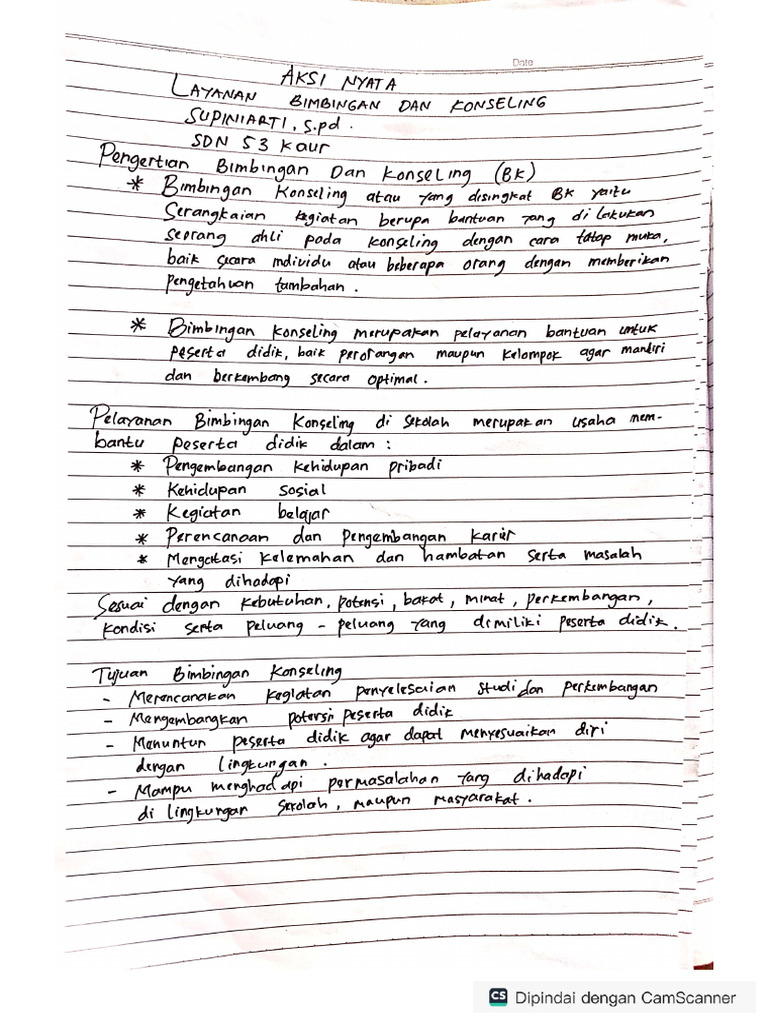 Date
AKSI NYATA
LAYANAN BIMBINGAN DAN KONSELING
SUPINIARTI, S.pd.
SDN 53 Kaur
Pengertian Bimbingan Dan Konseling (BK)
* Bimbingan Konseling atau yang disingkat BK yaitu
Serangkaian kegiatan berupa bantuan yang di lakukan
seorang ahli pada konseling dengan cara tatap muka,
baik secara individu atau beberapa orang dengan memberikan
pengetahuan tambahan.
* Bimbingan Konseling merupakan pelayanan bantuan untuk
peserta didik, baik perorangan maupun kelompok agar mandiri
dan berkembang secara optimal.
Pelayanan Bimbingan Konseling di sekolah merupakan usaha mem-
bantu peserta didik dalam :
* Pengembangan kehidupan pribadi
* Kehidupan sosial
* Kegiatan belajar
* Perencanaan dan Pengembangan karir
* Mengatasi kelemahan dan hambatan serta masalah
yang dihadapi
Sesuai dengan kebutuhan, potensi, bakat, minat, perkembangan,
kondisi serta peluang - peluang yang dimiliki peserta didik.
Tujuan Bimbingan Konseling
- Merencanakan kegiatan penyelesaian studi dan perkembangan
- Mengembangkan potensi peserta didik
- Menuntun peserta didik agar dapat menyesuaikan diri
dengan lingkungan.
- Mampu menghadapi permasalahan yang dihadapi
di lingkungan sekolah, maupun masyarakat.
CS Dipindai dengan CamScanner